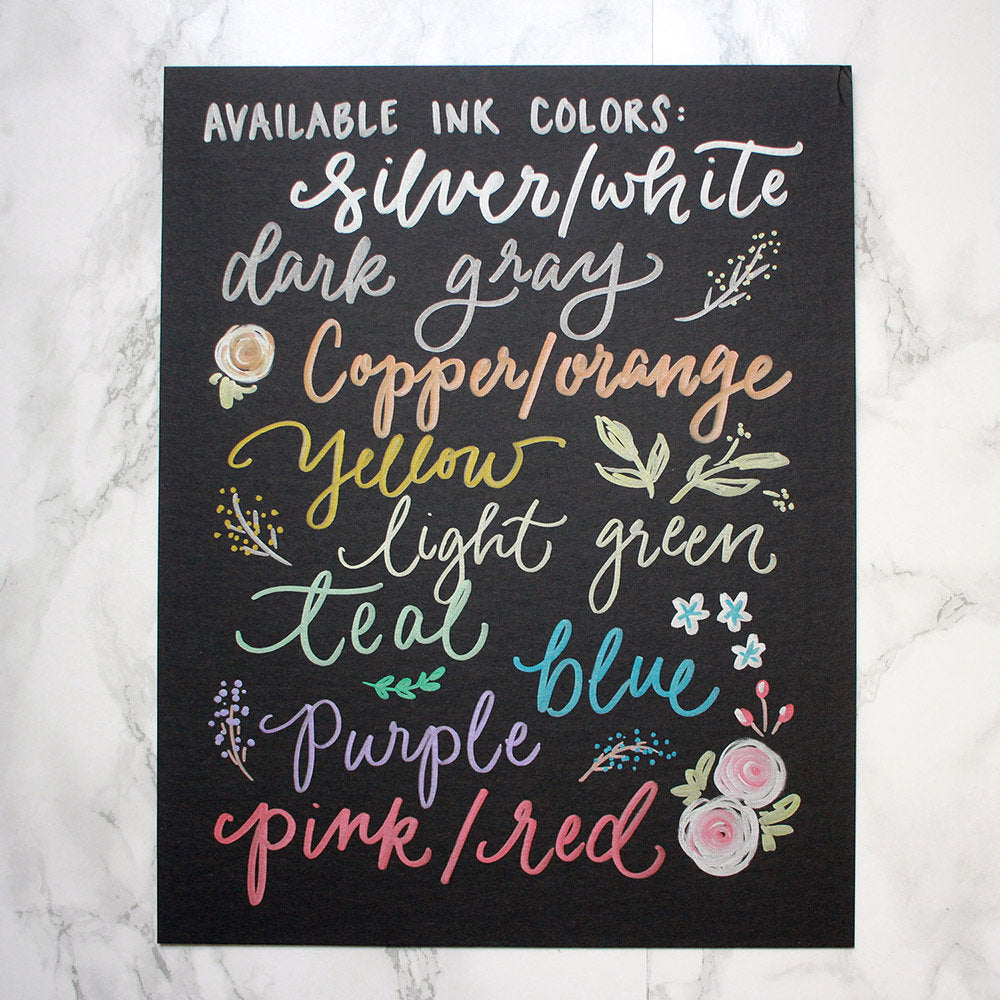 AVAILABLE INK COLORS:
silver/white
dark gray
Copper/orange
Yellow
light green
teal
blue
Purple
pink/red